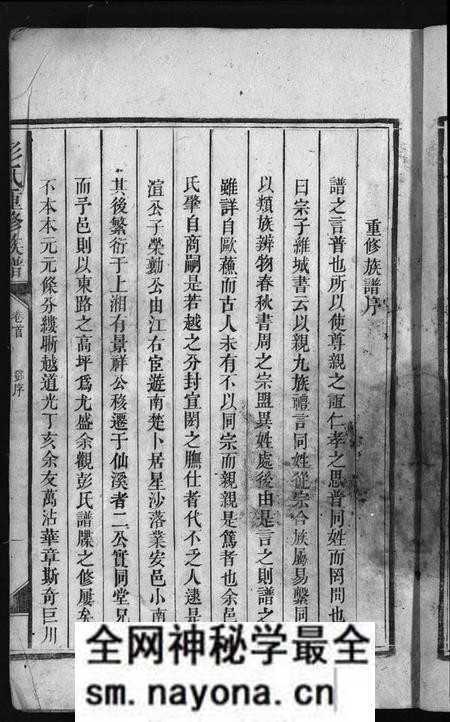 重修族譜序
譜之言普也所以使尊親之誼仁孝之思普同姓而罔間也
曰宗子維城書云以親九族禮言同姓從宗合族屬易繫同
以類族辨物春秋書周之宗盟異姓處後由是言之則譜之
雖詳自歐蘇而古人未有不以同宗而親親是篤者也余邑
氏肇自商嗣是若越之分封宜閎之膴仕者代不乏人逮是
渲公子榮勛公由江右宦遊南楚卜居星沙落業安邑小南
其後繁衍于上湘有景祥公移遷于仙溪者二公實同堂兄
而予邑則以東路之高坪爲尤盛余觀彭氏譜牒之修屢矣
不本本元元條分縷晣越道光丁亥余友萬沾華章斯奇巨川
彭氏重修族譜
卷首
鄧序
全网神秘学最全
sm.nayona.cn